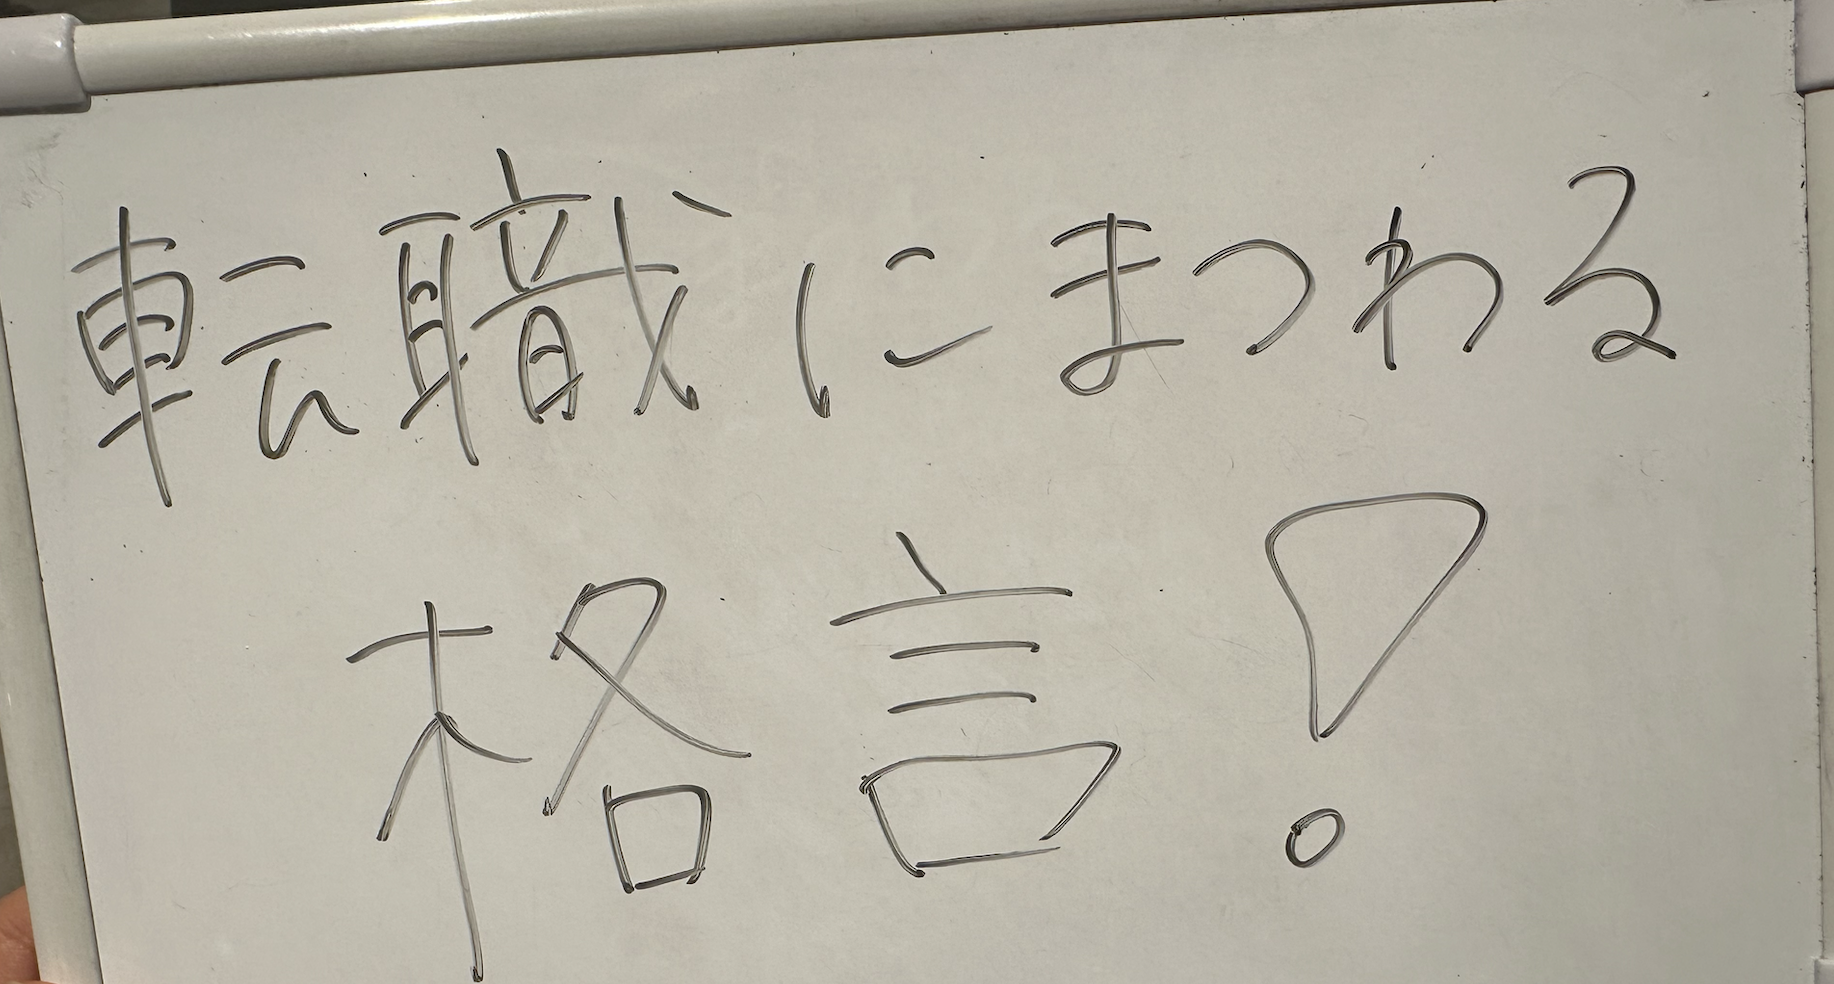 転職にまつわる
格言!